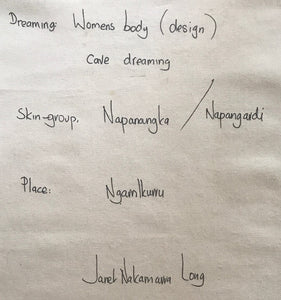 Dreaming: Womens body (design)
Cave dreaming
Skin-group. Napanangka / Napangardi
Place: Ngamlkurru
Janet Nakamarra Long